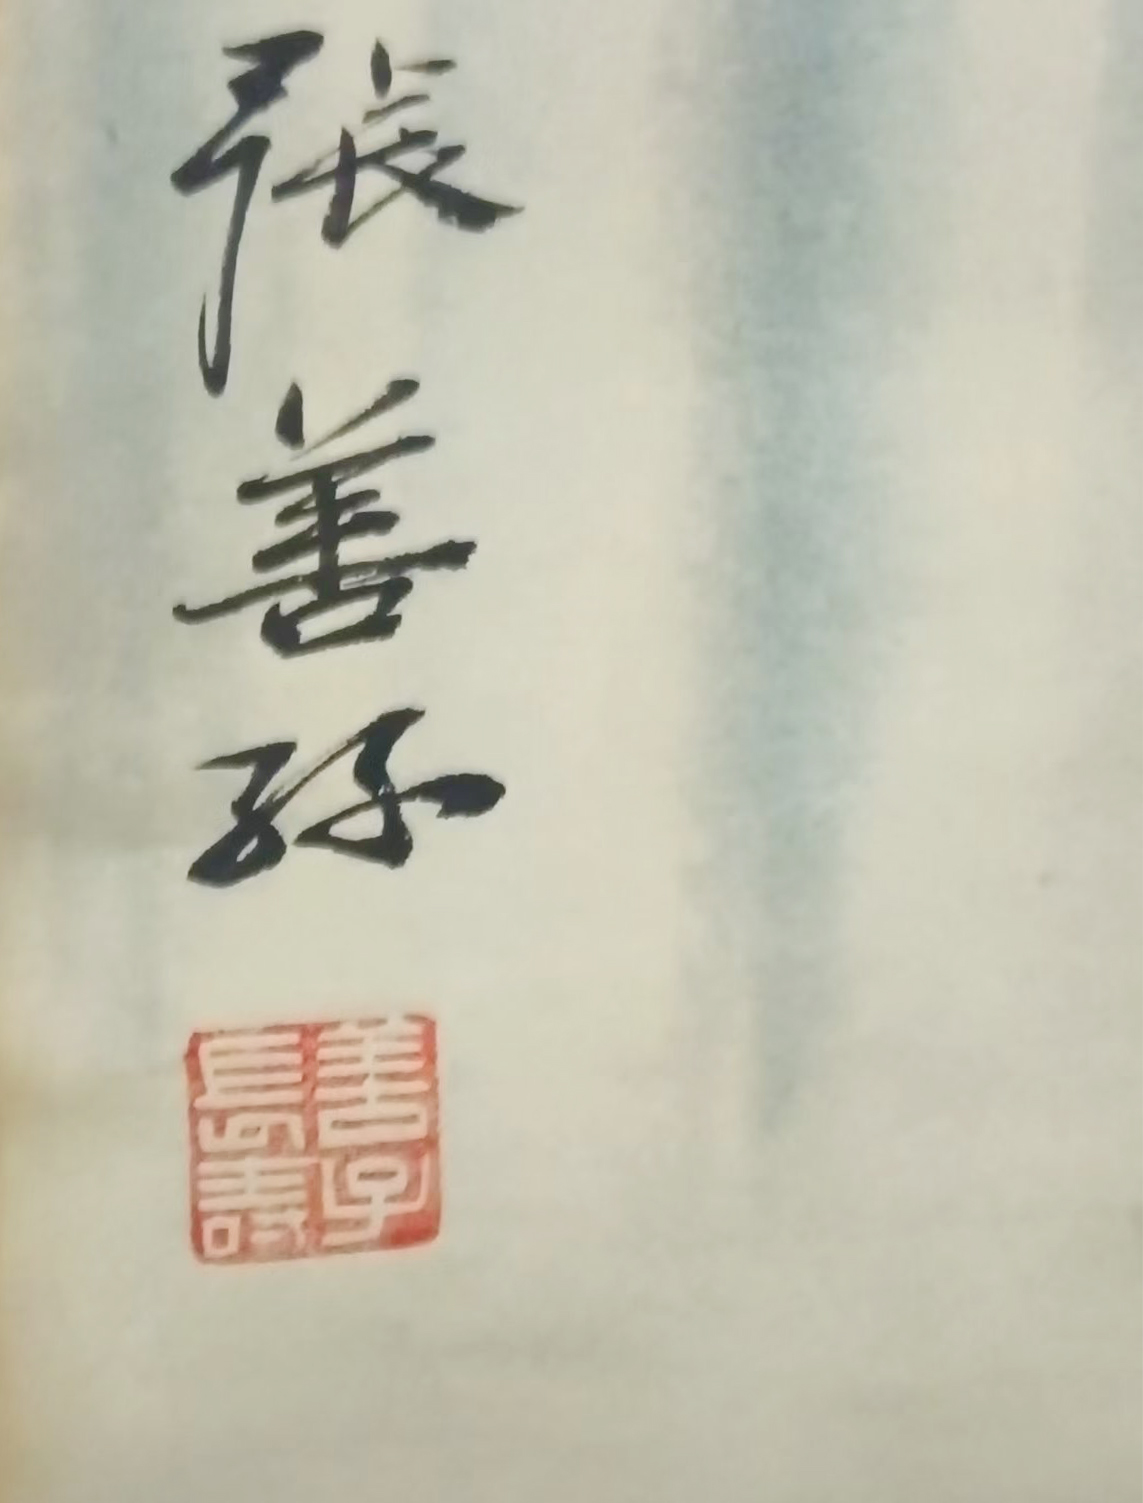 張善孖
善子長壽